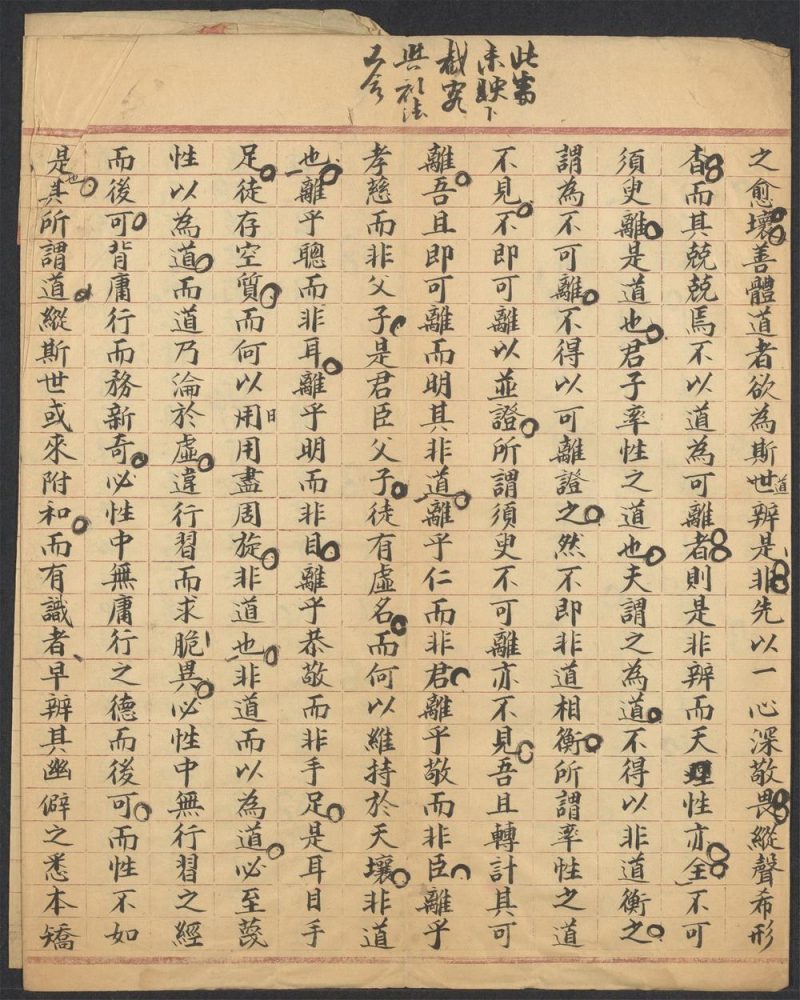 此嵩
未映下
截定
與初法
又合
之愈壞善體道者欲為斯世道辨是非先以一心深敬畏縱聲希形
杳而其兢兢焉不以道為可離者則是非辨而天理性亦全不可
須臾離是道也君子率性之道也夫謂之為道不得以非道衡之
謂為不可離不得以可離證之然不即非道相衡所謂率性之道
不見不即可離以並證所謂須臾不可離亦不見吾且轉計其可
離吾且即可離而明其非道離乎仁而非君離乎敬而非臣離乎
孝慈而非父子是君臣父子徒有虛名而何以維持於天壤非道
也離乎聰而非耳離乎明而非目離乎恭敬而非手足是耳目手
足徒存空質而何以用日用盡周旋非道也非道而以為道必至蔑
性以為道而道乃淪於虛違行習而求脆異必性中無行習之經
而後可背庸行而務新奇必性中無庸行之德而後可而性不如
是其也所謂道縱斯世或來附和而有識者早辨其幽僻之悉本矯